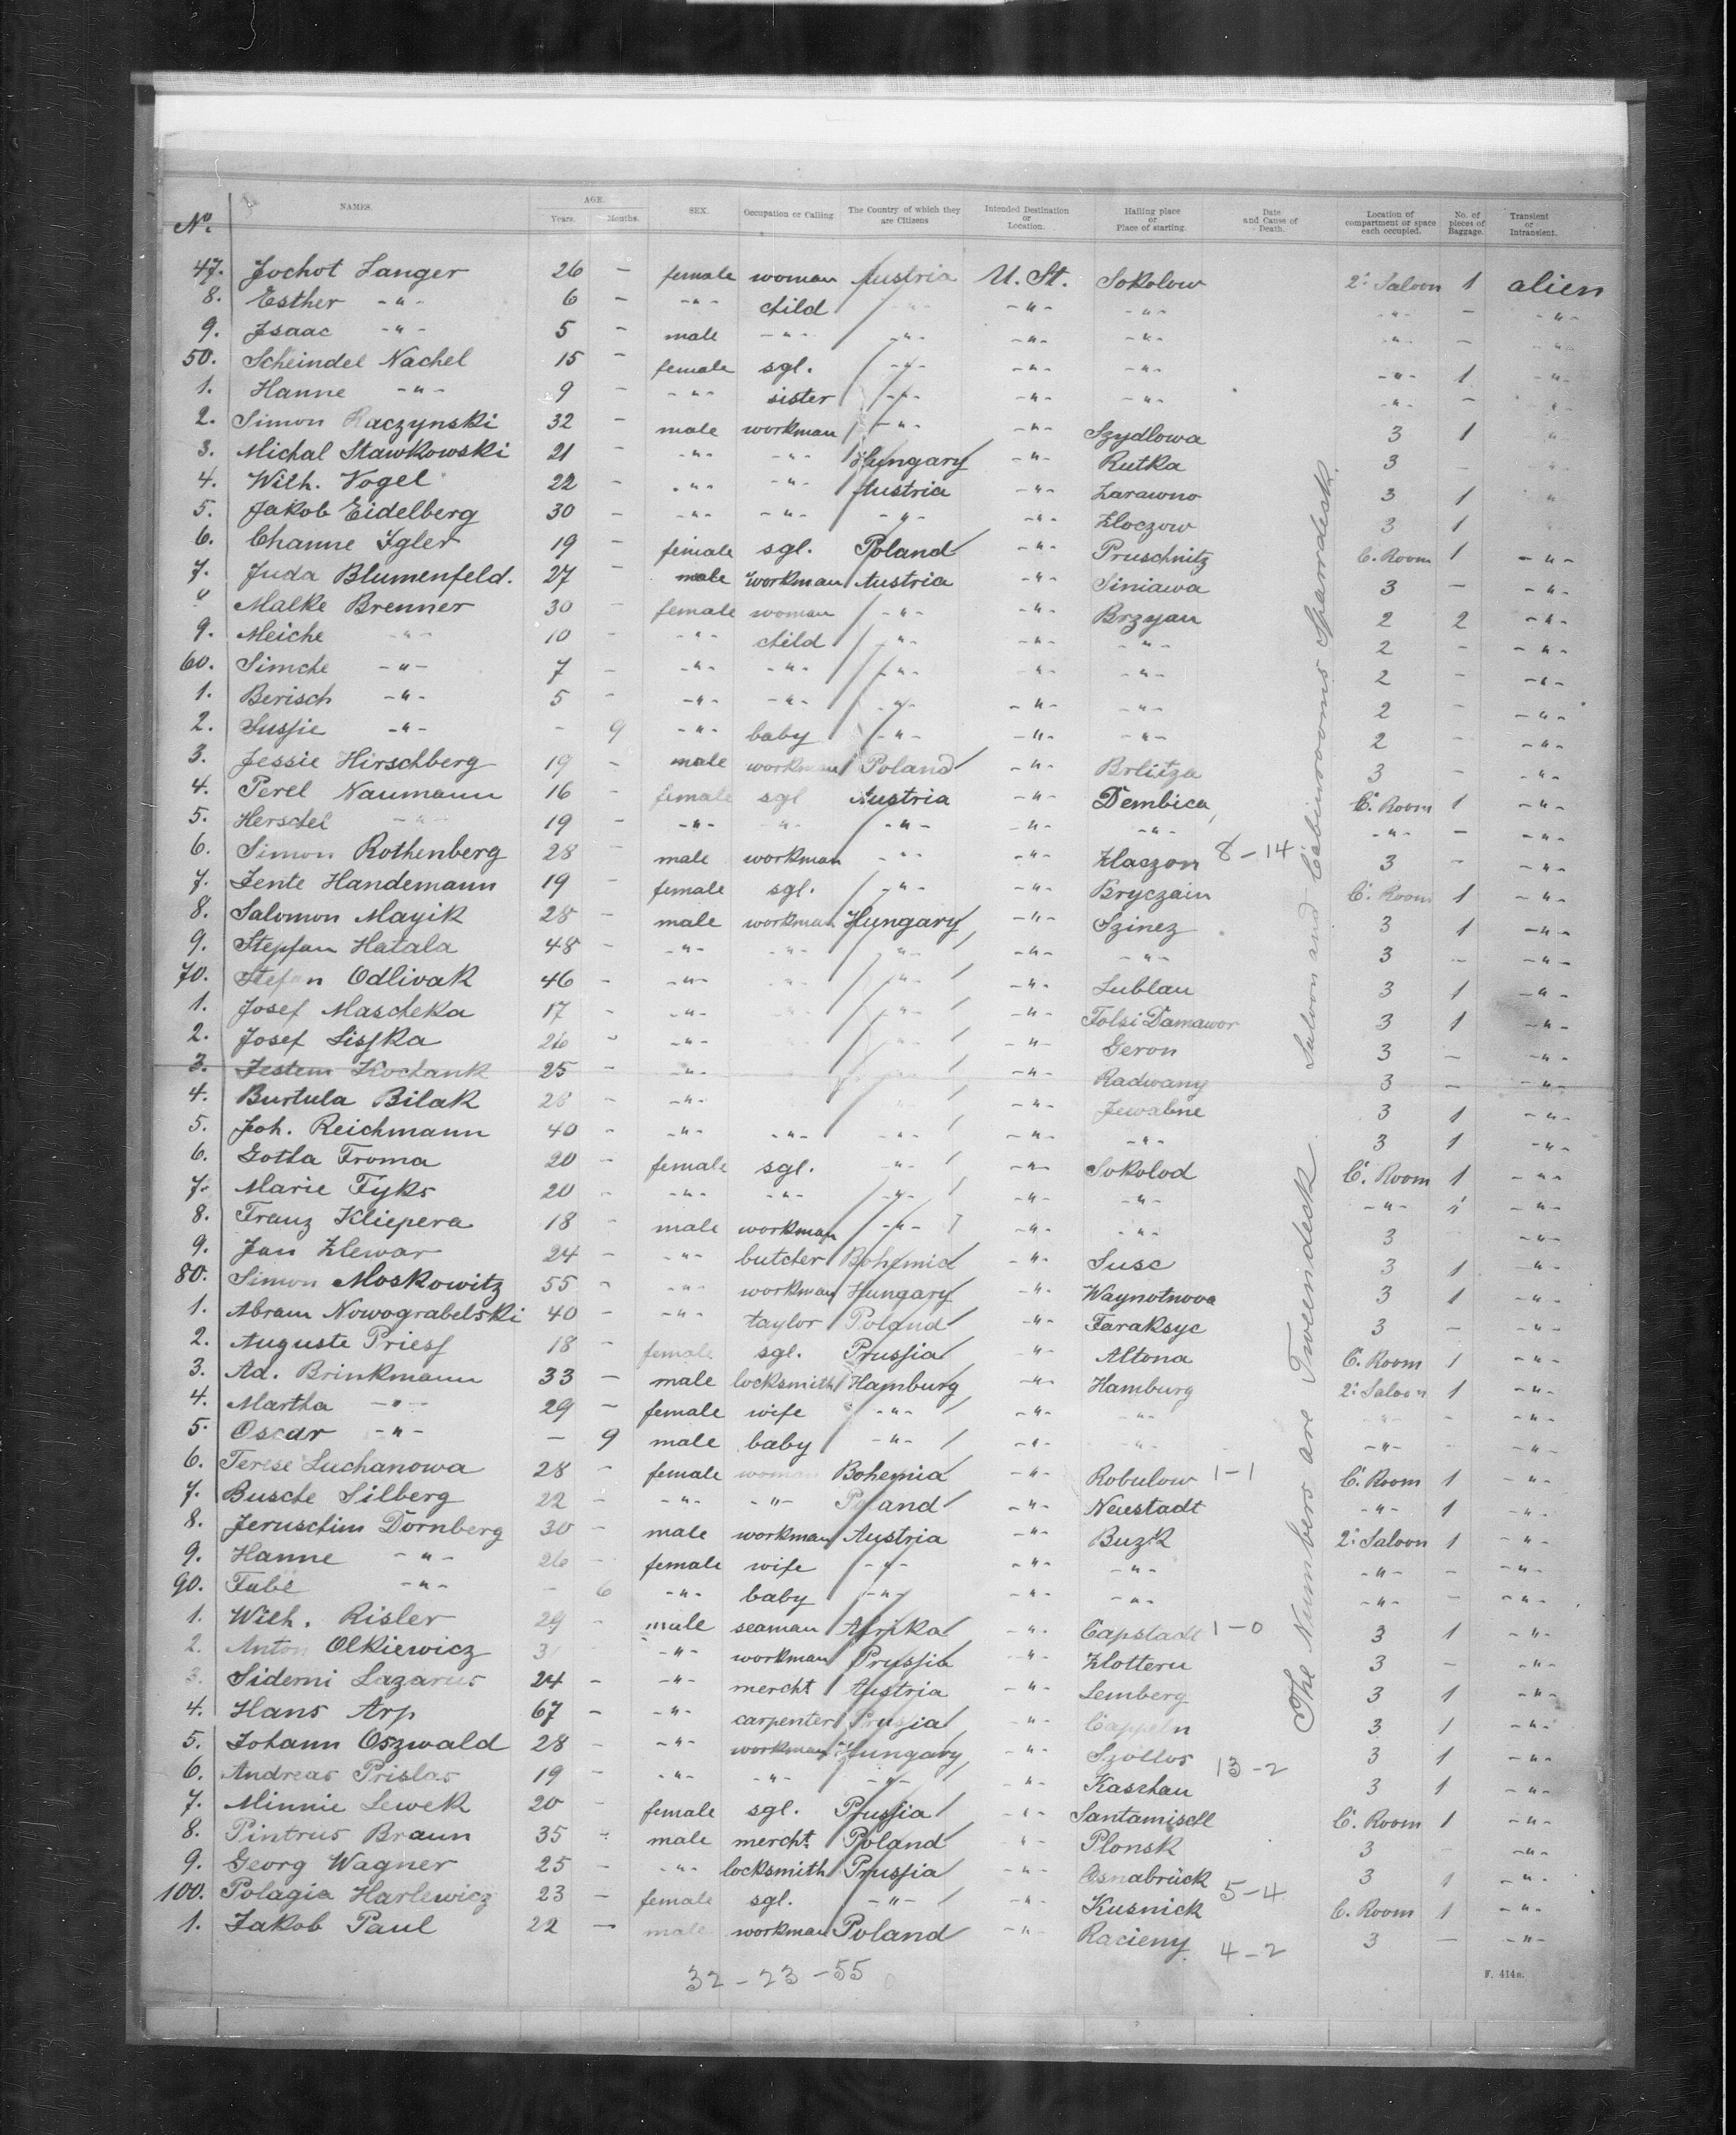 No. NAMES. AGE. Years. Months. SEX. Occupation or Calling The Country of which they are Citizens Intended Destination or Location. Hailing place or Place of starting. Date and Cause of Death. Location of compartment or space each occupied. No. of pieces of Baggage. Transient or Intransient.
47. Jochot Langer 26 - female woman Austria U. St. Sokolow 2: Saloon 1 alien
8. Esther -"- 6 - -"- child -"- -"- -"- -"- - -"-
9. Isaac -"- 5 - male -"- -"- -"- -"- -"- - -"-
50. Scheindel Nachel 15 - female sgl. -"- -"- -"- -"- 1 -"-
1. Hanne -"- 9 - -"- sister -"- -"- -"- -"- - -"-
2. Simon Raczynski 32 - male workman -"- -"- Szydlowa 3 1 "
3. Michal Stawkowski 21 - -"- -"- Hungary -"- Rutka 3 - "
4. Wilh. Vogel 22 - -"- -"- Austria -"- Zarawno 3 1 "
5. Jakob Eidelberg 30 - -"- -"- -"- -"- Zloczow 3 1
6. Channe Igler 19 - female sgl. Poland -"- Pruschnitz C. Room 1 -"-
7. Juda Blumenfeld. 27 - male workman Austria -"- Siniawa 3 - -"-
" Malke Brenner 30 - female woman -"- -"- Brzyan 2 2 -"-
9. Meiche -"- 10 - -"- child -"- -"- -"- 2 - -"-
60. Simche -"- 7 - -"- -"- -"- -"- -"- 2 - -"-
1. Berisch -"- 5 - -"- -"- -"- -"- -"- 2 - -"-
2. Sussie -"- - 9 -"- baby -"- -"- -"- 2 - -"-
3. Jessie Hirschberg 19 - male workman Poland -"- Brlitza 3 - -"-
4. Perel Naumann 16 - female sgl Austria -"- Dembica, C. Room 1 -"-
5. Herschel -"- 19 - -"- -"- -"- -"- -"- -"- - -"-
6. Simon Rothenberg 28 - male workman -"- -"- Zlaczon 8-14 3 - -"-
7. Jente Handemann 19 - female sgl. -"- -"- Bryczain C. Room 1 -"-
8. Salomon Mayik 28 - male workman Hungary -"- Szinez 3 1 -"-
9. Stepfan Hatala 48 - -"- -"- -"- -"- -"- 3 - -"-
70. Stefan Odlivak 46 - -"- -"- -"- -"- Lublau 3 1 -"-
1. Josef Mascheka 17 - -"- -"- -"- Folsi Damawor 3 1 -"-
2. Josef Lisska 26 - -"- -"- -"- Geron 3 - -"-
3. Jestem Kochank 25 - -"- -"- Radwany 3 - -"-
4. Burtula Bilak 28 - -"- -"- Jewabne 3 1 -"-
5. Joh. Reichmann 40 - -"- -"- -"- -"- -"- 3 1 -"-
6. Gotta Froma 20 - female sgl. -"- -"- Sokolod C. Room 1 -"-
7. Marie Fyks 20 - -"- -"- -"- -"- -"- -"- 1 -"-
8. Franz Kliepera 18 - male workman -"- -"- -"- 3 - -"-
9. Jan Zlewar 24 - -"- butcher Bohemia -"- Susc 3 1 -"-
80. Simon Moskowitz 55 - -"- workman Hungary -"- Waynotnova 3 1 -"-
1. Abram Nowograbelski 40 - -"- taylor Poland -"- Faraksyc 3 - -"-
2. Auguste Priess 18 - female sgl. Prussia -"- Altona C. Room 1 -"-
3. Ad. Brinkmann 33 - male locksmith Hamburg -"- Hamburg 2: Saloon 1 -"-
4. Martha -"- 29 - female wife -"- -"- -"- -"- - -"-
5. Oscar -"- - 9 male baby -"- -"- -"- -"- - -"-
6. Terese Luchanowa 28 - female woman Bohemia -"- Robulow 1-1 C. Room 1 -"-
7. Busche Silberg 22 - -"- -"- Poland -"- Neustadt -"- 1 -"-
8. Jeruschim Dornberg 30 - male workman Austria -"- Buzk 2: Saloon 1 -"-
9. Hanne -"- 26 - female wife -"- -"- -"- -"- - -"-
90. Tube -"- - 6 -"- baby -"- -"- -"- -"- - -"-
1. Wilh. Risler 29 - male seaman Afrika -"- Capstadt 1-0 3 1 -"-
2. Anton Olkiewicz 31 -"- workman Prussia -"- Zlotteru 3 - -"-
3. Siderni Lazarus 24 - -"- mercht Austria -"- Lemberg 3 1 -"-
4. Hans Arp 67 - -"- carpenter Prussia -"- Cappeln 3 1 -"-
5. Johann Oszwald 28 - -"- workman Hungary -"- Szöllos 13-2 3 1 -"-
6. Andreas Prislas 19 - -"- -"- -"- -"- Kaschau 3 1 -"-
7. Minnie Lewek 20 - female sgl. Prussia -"- Santamischl C. Room 1 -"-
8. Pintrus Braun 35 - male mercht Poland -"- Plonsk 3 - -"-
9. Georg Wagner 25 - -"- locksmith Prussia -"- Osnabrück 3 1 -"-
100. Polagia Harlewicz 23 - female sgl. -"- -"- Kusnick 5-4 C. Room 1 -"-
1. Jakob Paul 22 - male workman Poland -"- Racieny 4-2 3 - -"-
32-23-55
F. 414a.
The Numbers are Tweendeck. Saloon and Cabinrooms Sparrdeck.